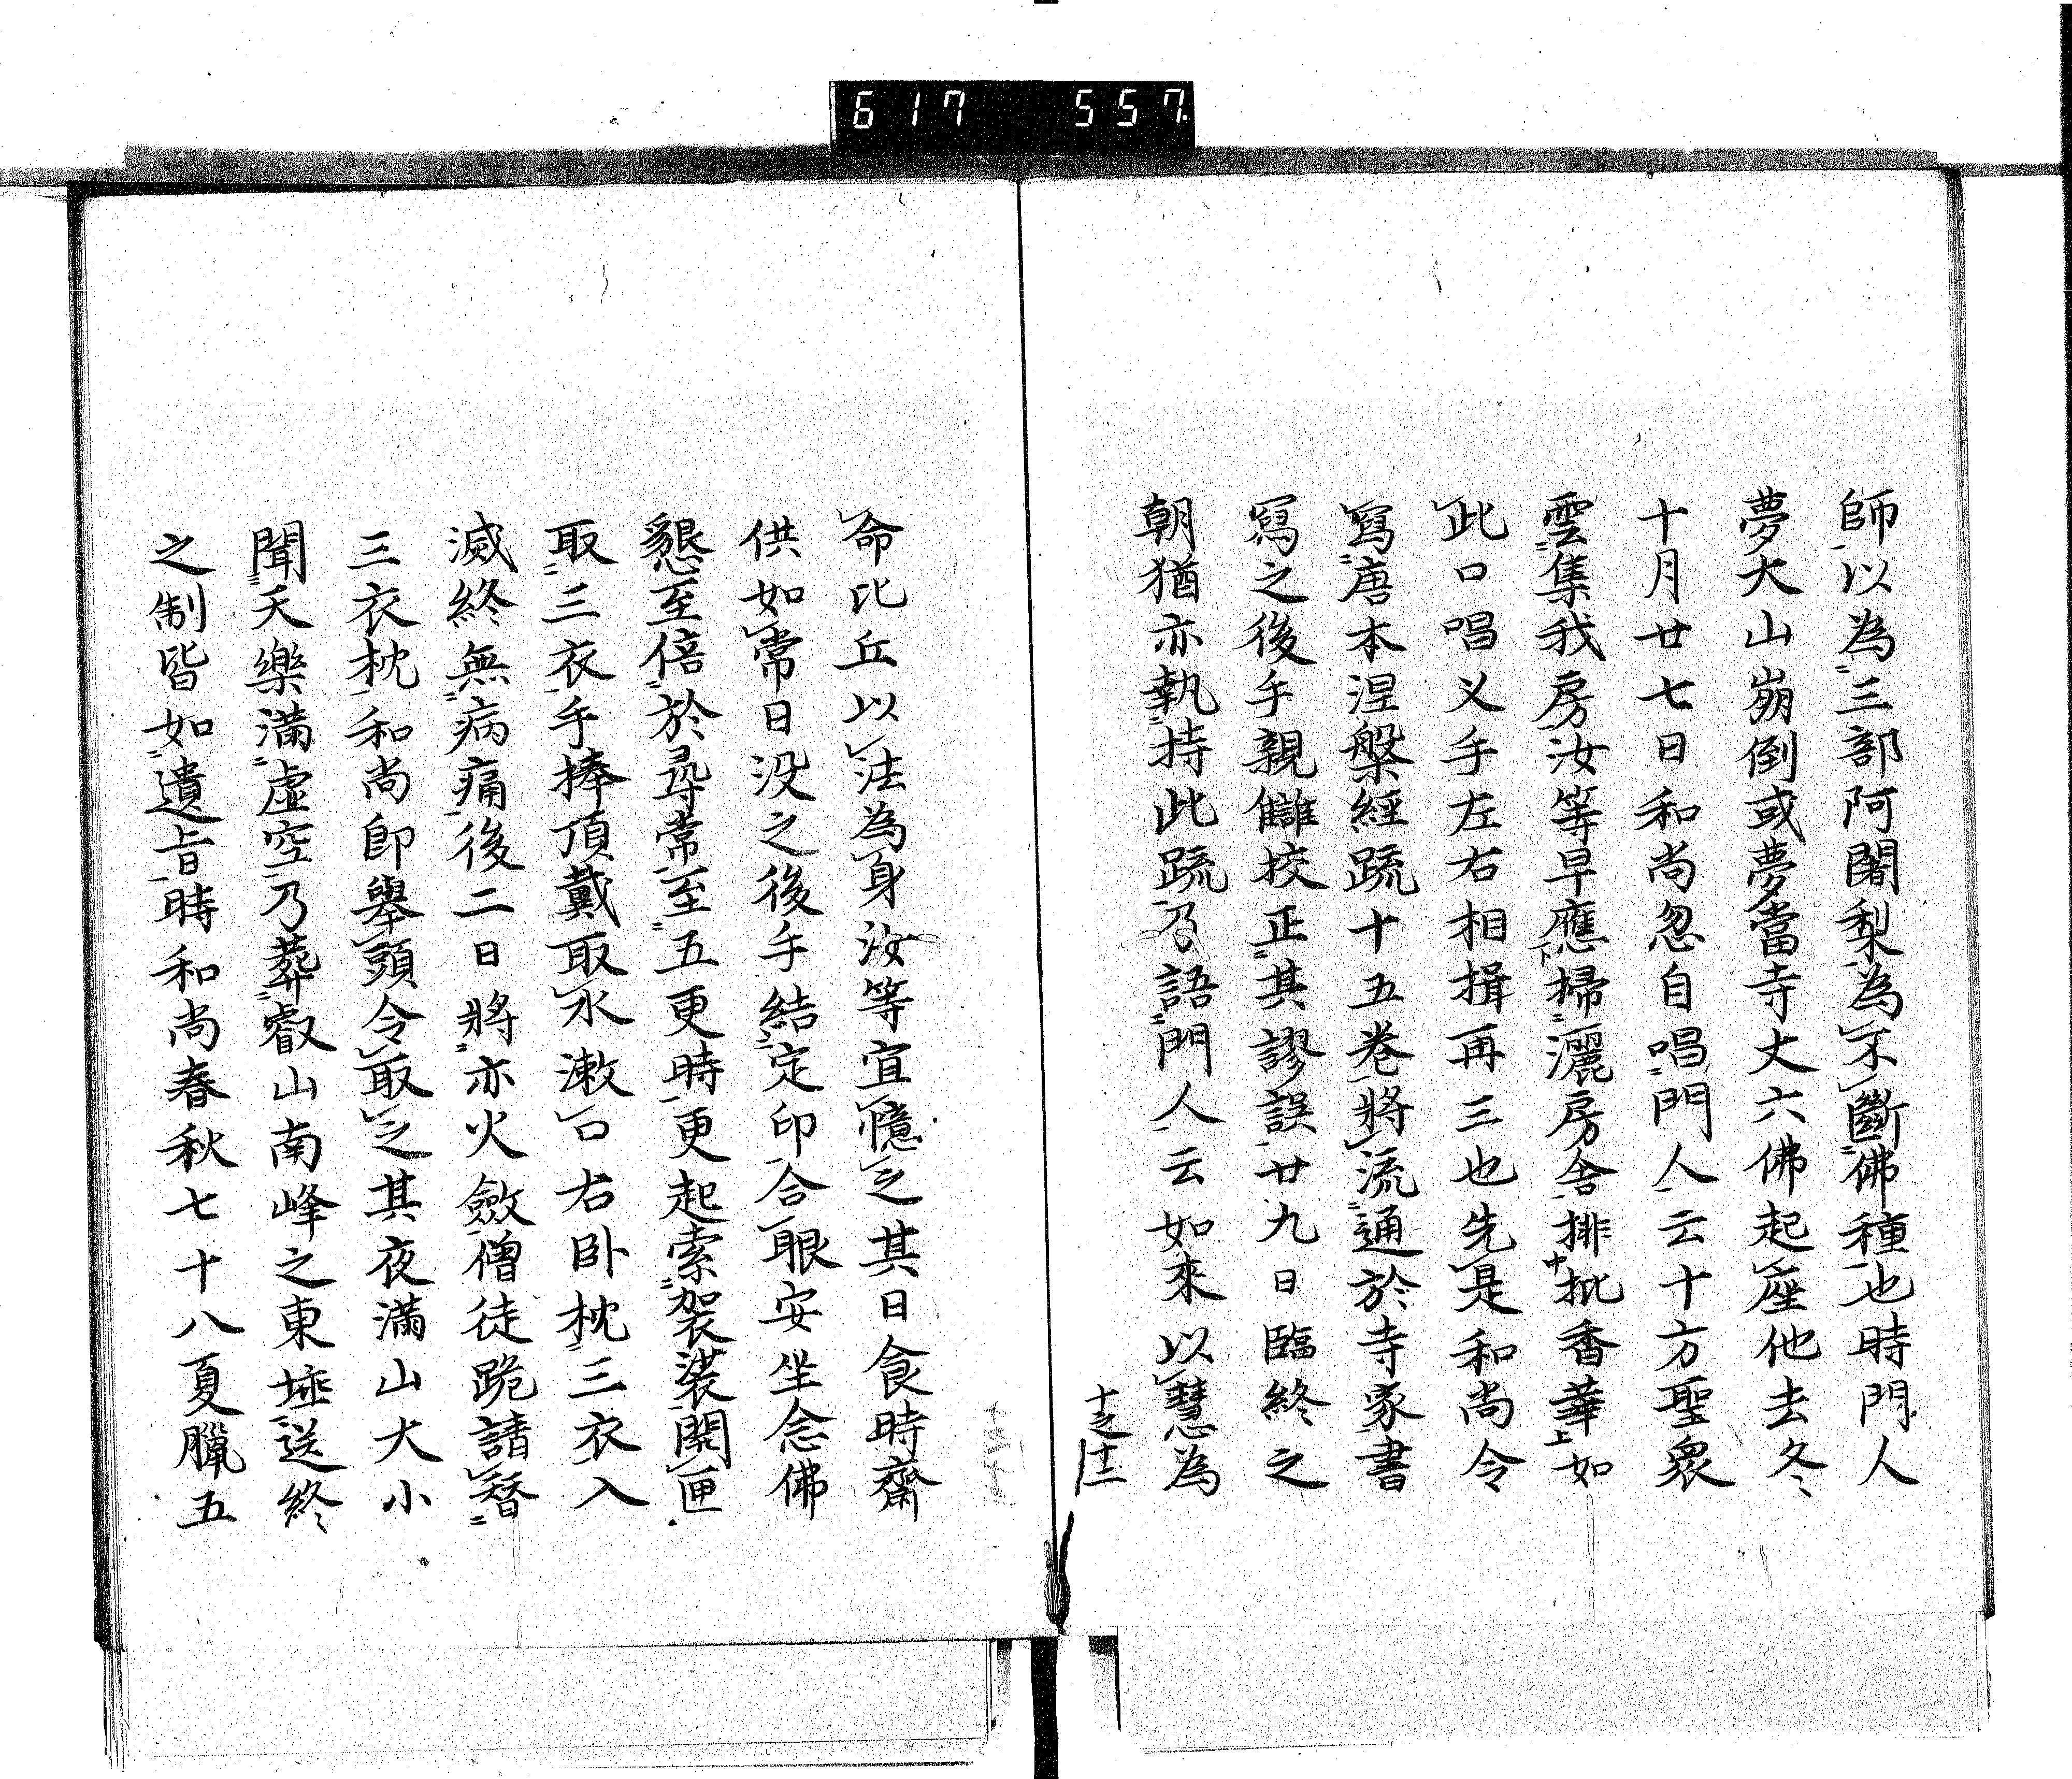 617 557
師以為三部阿闍梨為不斷佛種也時門人
夢大山崩倒或夢當寺丈六佛起座他去冬
十月廿七日和尚忽自唱門人云十方聖衆
雲集我房汝等早應掃灑房舍排批香華如
此口唱叉手左右相揖再三也先是和尚令
寫唐本涅槃經疏十五卷將流通於寺家書
寫之後手親讎挍正其謬誤廿九日臨終之
朝猶亦執持此疏乃語門人云如來以慧為
十之十二
命比丘以法為身汝等宜憶之其日食時齋
供如常日沒之後手結定印合眼安坐念佛
懇至倍於尋常至五更時更起索袈裟開匣
取三衣手捧頂戴取水漱口右卧枕三衣入
滅終無病痛後二日將亦火斂僧徒跪請替
三衣枕和尚即舉頭令取之其夜滿山大小
聞天樂滿虛空乃葬叡山南峰之東埵送終
之制皆如遺旨時和尚春秋七十八夏臘五